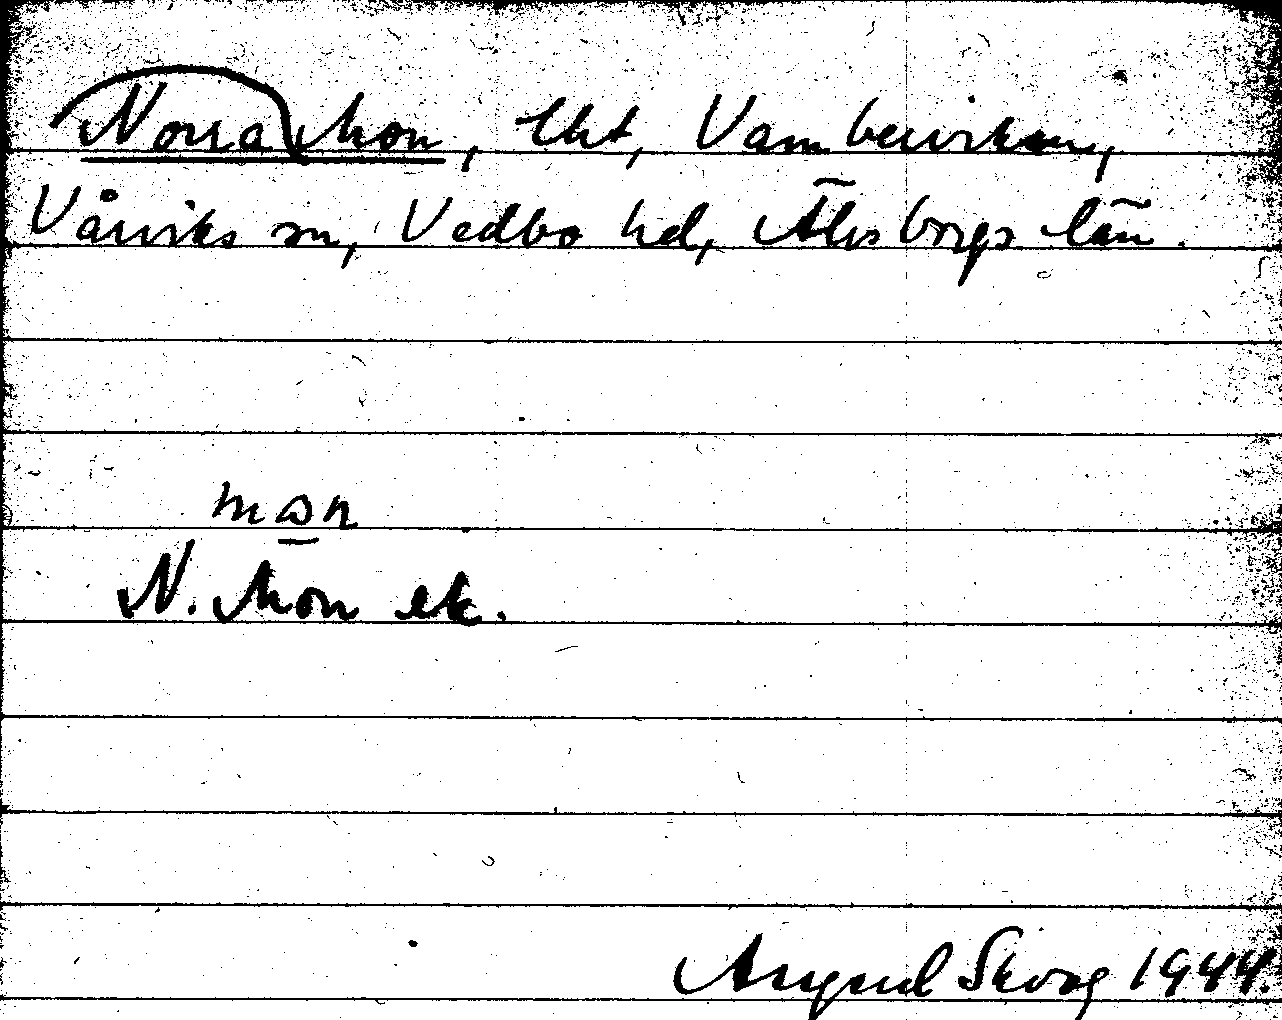 Norra Mon, lht, Vamberviken,
Vårviks sn, Vedbo hd, Älvsborgs län.
mɷn
N. Mon ek.
August Skog 1944.